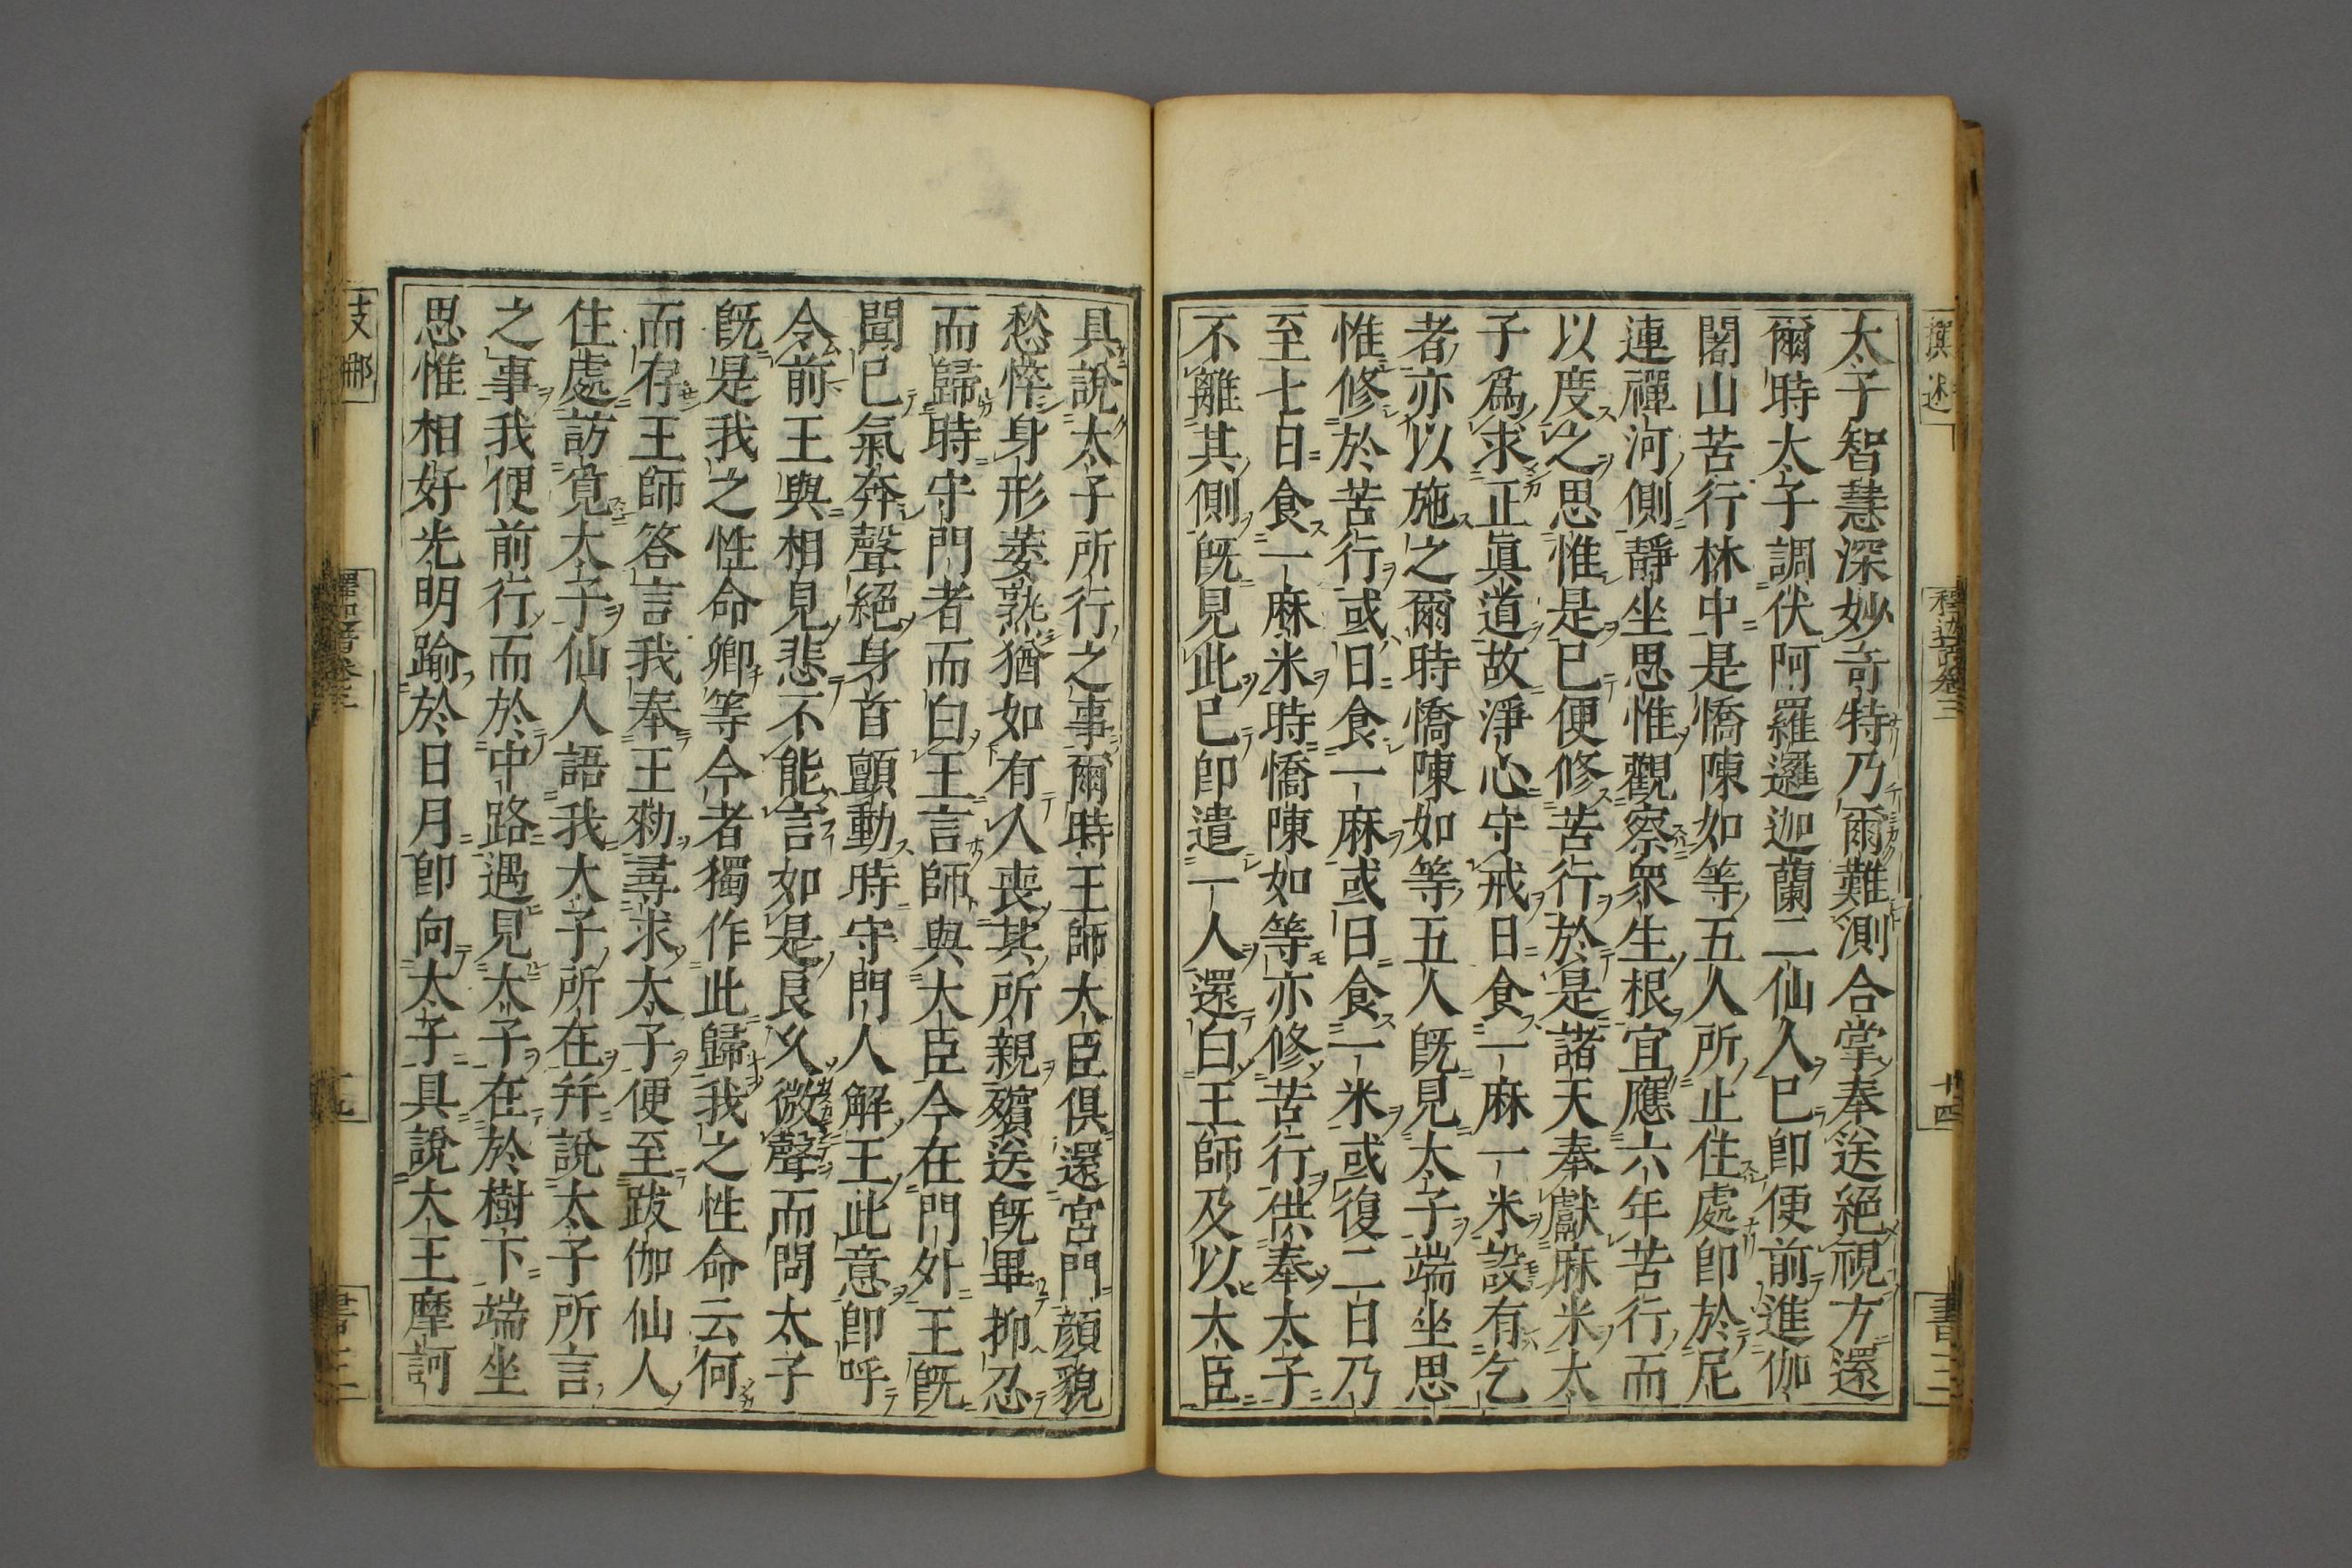 撰述
釋迦譜卷三
十四
書三
太子智慧深妙奇特乃爾難測合掌奉送絕視方還
爾時太子調伏阿羅邏迦蘭二仙人已即便前進伽
闍山苦行林中是憍陳如等五人所止住處即於尼
連禪河側靜坐思惟觀察衆生根宜應六年苦行而
以度之思惟是已便修苦行於是諸天奉獻麻米太
子爲求正眞道故淨心守戒日食一麻一米設有乞
者亦以施之爾時憍陳如等五人既見太子端坐思
惟修於苦行或日食一麻或日食一米或復二日乃
至七日食一麻米時憍陳如等亦修苦行供奉太子
不離其側既見此已即遣一人還白王師及以大臣
具說太子所行之事爾時王師大臣俱還宮門顏貌
愁悴身形萎熟猶如有人喪其所親殯送既畢抑忍
而歸時守門者而白王言師與大臣今在門外王既
聞已氣奔聲絕身首顫動時守門人解王此意即呼
令前王與相見悲不能言如是良久微聲而問太子
既是我之性命卿等今者獨作此歸我之性命云何
而存王師答言我奉王勑尋求太子便至跋伽仙人
住處訪覓太子仙人語我太子所在幷說太子所言
之事我便前行而於中路遇見太子在於樹下端坐
思惟相好光明踰於日月即向太子具說大王摩訶
支那
釋迦譜卷三
書三